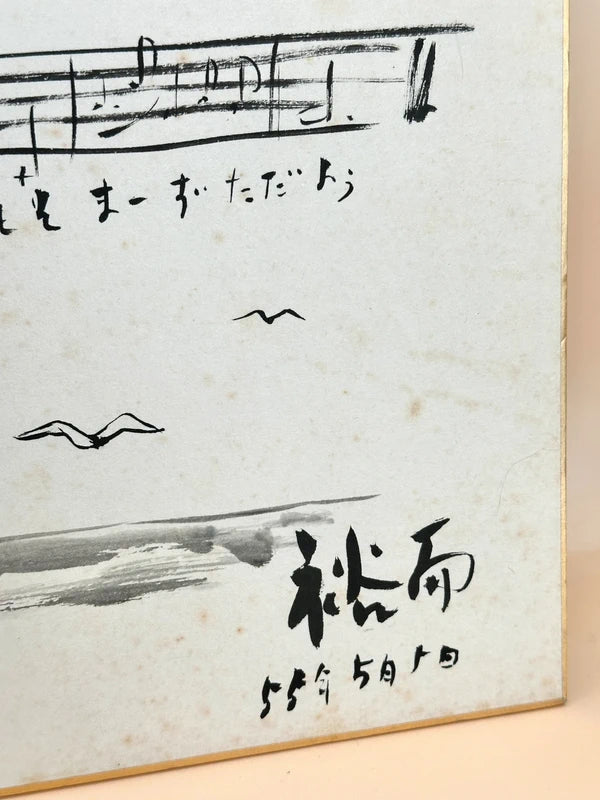 そまーずただよう
裕而
55年5月 日